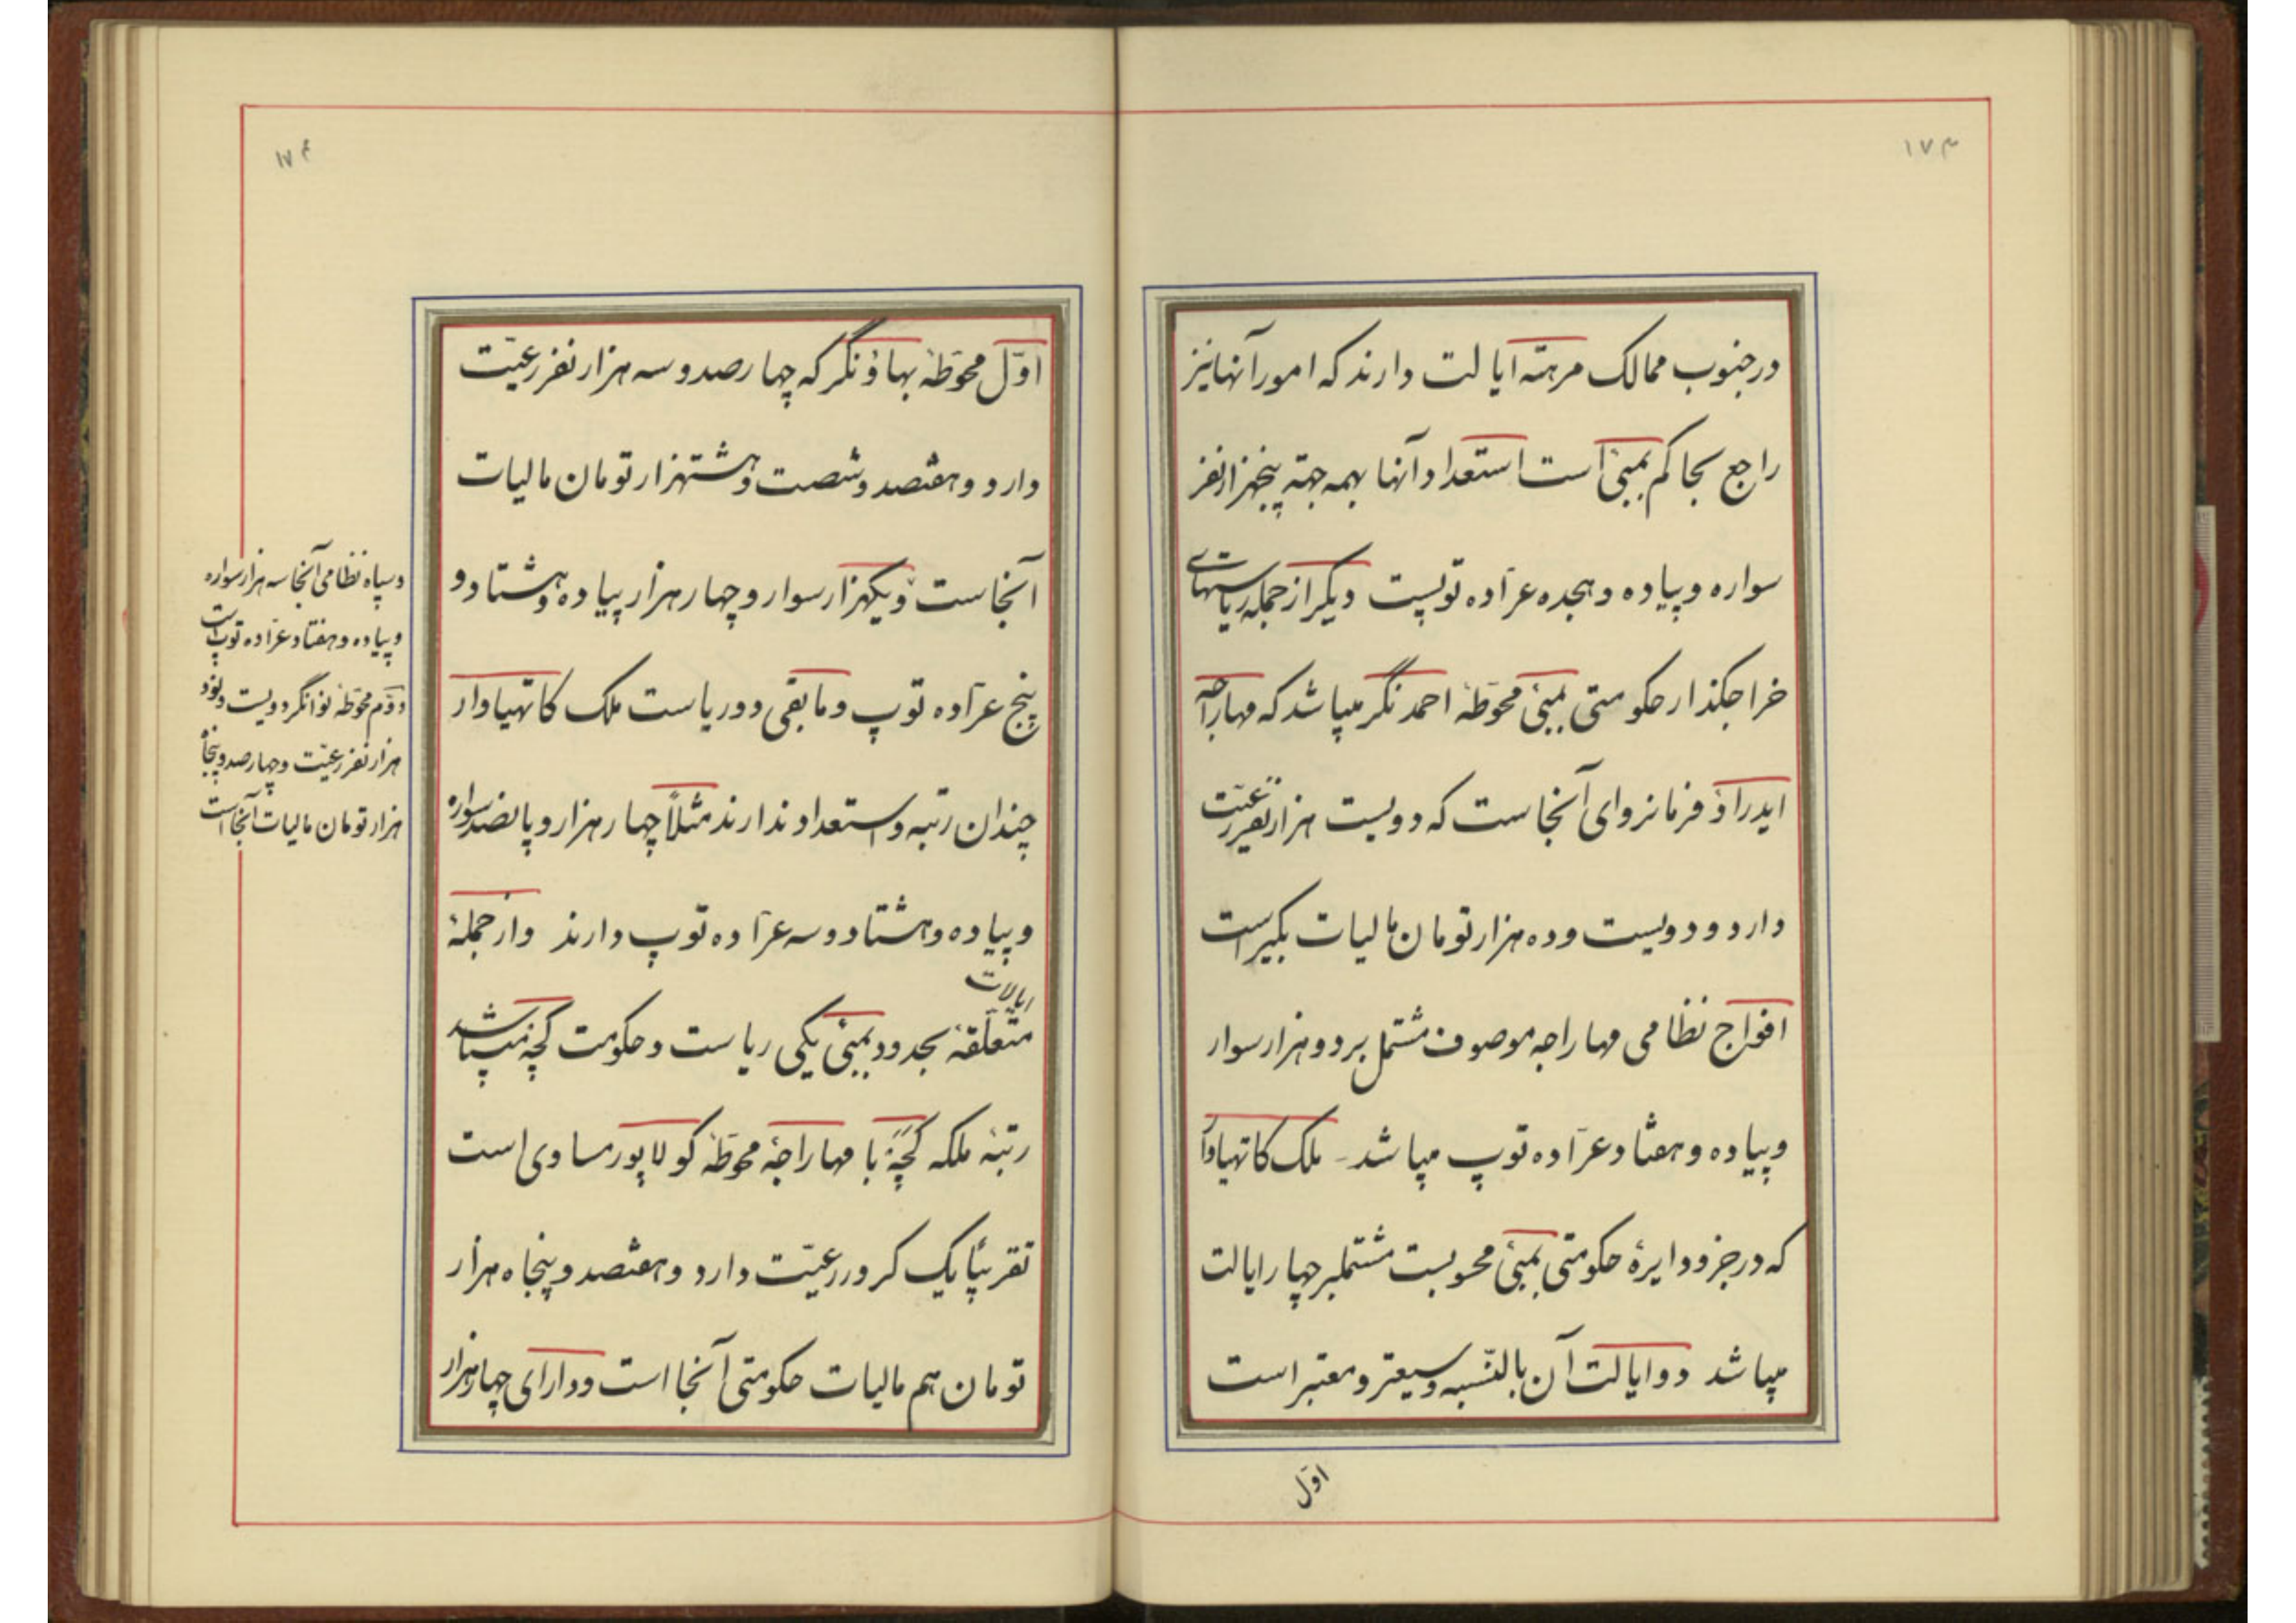 ۱۷۳
در جنوب ممالک مرهته ایالت دارند که امور آنها نیز
راجع بحاکم بمبئی است استعداد آنها بهمه جهته پنجهزار نفر
سواره و پیاده و هجده عرّاده توپست دیگر از جمله ریاستهای
خراجکذار حکومتی بمبئی محوّطهٔ احمد نگر میباشد که مهاراجه
ایدر راؤ فرمانروای آنجاست که دویست هزار نفر رعیّت
دارد و دویست و ده هزار تومان مالیات بگیر است
افواج نظامی مهاراجه موصوف مشتمل بر دو هزار سوار
و پیاده و هفتاد عرّاده توپ میباشد ملک کاتهیاوار
که در جزو دایرهٔ حکومتی بمبئی محسوبست مشتملبر چهار ایالت
میباشد دو ایالت آن بالنّسبه وسیعتر و معتبر است
اوّل
۱۷۴
اوّل محوّطهٔ بهاؤنگر که چهار صد و سه هزار نفر رعیّت
دارد و هفتصد و شصت و هشتهزار تومان مالیات
آنجاست و یکهزار سوار و چهار هزار پیاده و هشتاد و
پنج عرّاده توپ و مابقی دو ریاست ملک کاتهیاوار
چندان رتبه و استعداد ندارند مثلاً چهار هزار و پانصد سواره
و پیاده و هشتاد و سه عرّاده توپ دارند و از جملهٔ
ایالات
متعلّقهٔ بحدود بمبئی یکی ریاست و حکومت کچهٔ میباشد
رتبهٔ ملکه کچهٔ با مهاراجهٔ محوّطهٔ کولاپور مساوی است
تقریباً یک کرور رعیّت دارد و هفتصد و پنجاه هزار
تومان هم مالیات حکومتی آنجا است و دارای چهار هزار
و سپاه نظامی آنجا سه هزار سواره
و پیاده و هفتاد عرّاده توپ است
دوّم محوّطهٔ نوانگر دویست و نود
هزار نفر رعیّت و چهار صد و پنجاه
هزار تومان مالیات آنجا است